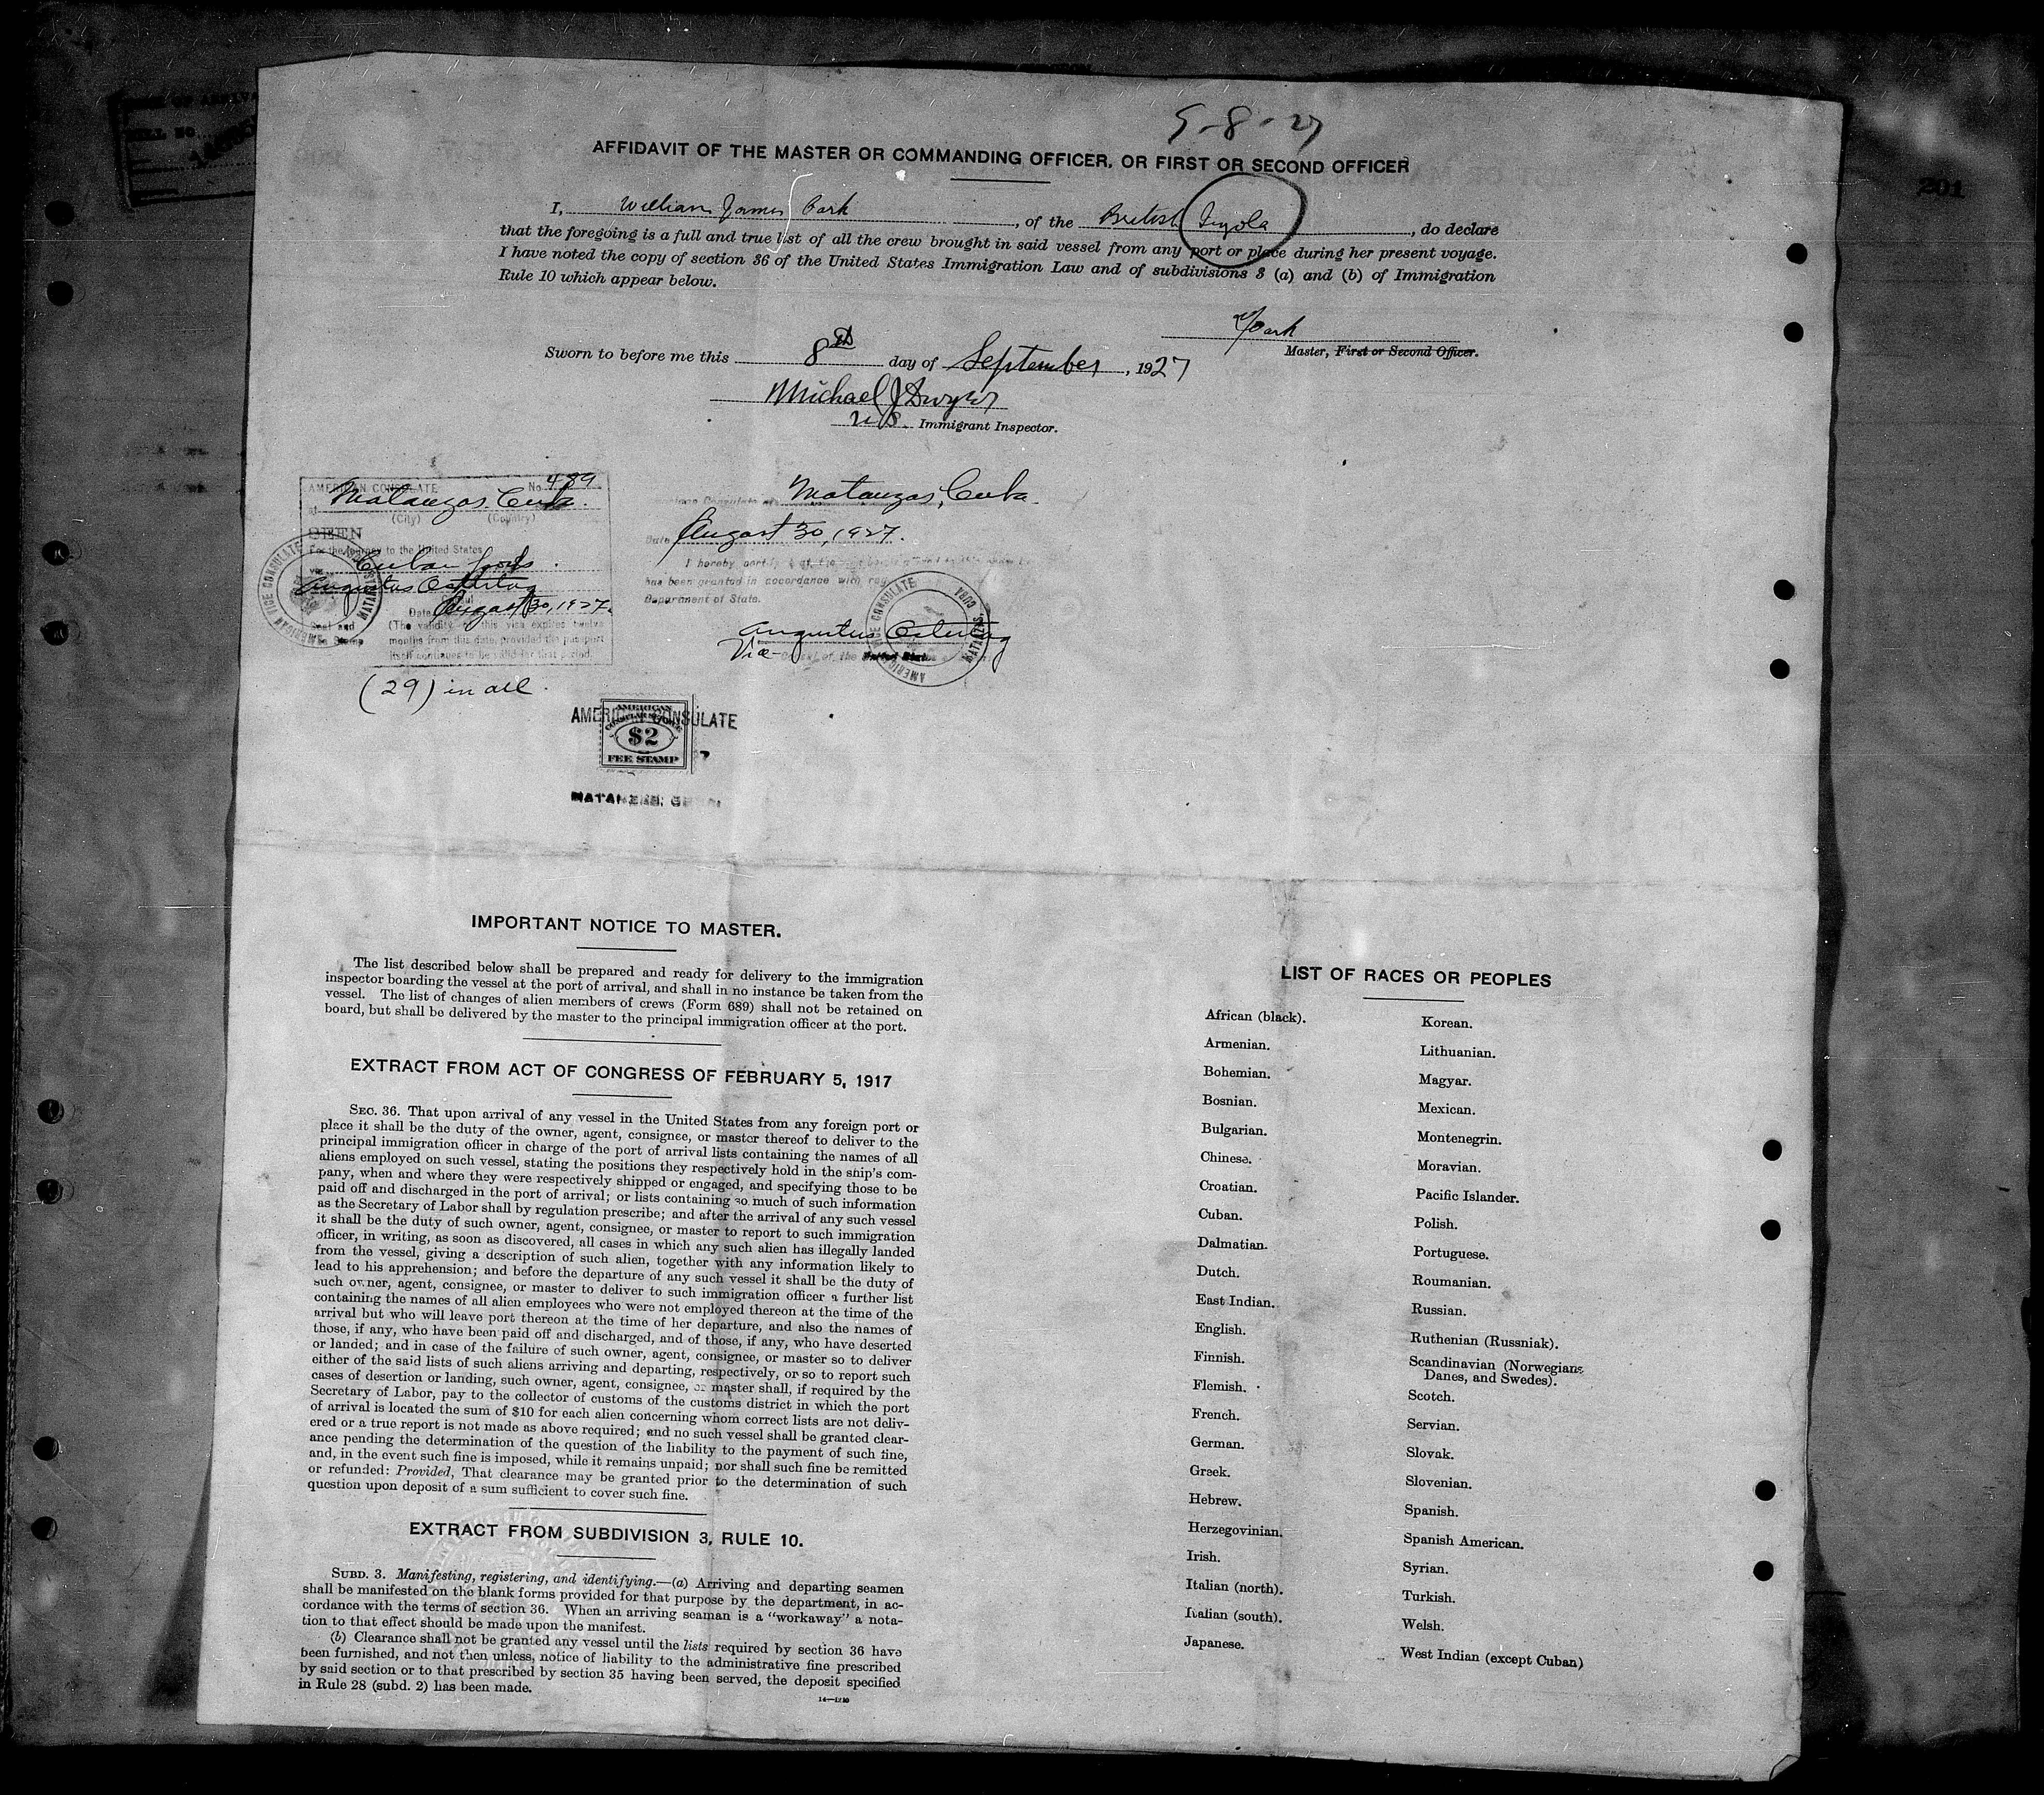 9-8-27
AFFIDAVIT OF THE MASTER OR COMMANDING OFFICER, OR FIRST OR SECOND OFFICER
I, William James Park, of the British, do declare
that the foregoing is a full and true list of all the crew brought in said vessel from any port or place during her present voyage.
I have noted the copy of section 36 of the United States Immigration Law and of subdivisions 3 (a) and (b) of Immigration
Rule 10 which appear below.
Master, First or Second Officer.
Sworn to before me this 8th day of September, 1927
Michael J Dwyer
U.S. Immigrant Inspector.
AMERICAN CONSULATE No. 489
at Matanzas, Cuba.
(City) (Country)
SEEN
For the journey to the United States
via Cuban ports.
Augustus Ostertag
Consul
Date August 30, 1927.
Seal and Fee Stamp
(The validity of this visa expires twelve
months from this date, provided the passport
itself continues to be valid for that period.
AMERICAN VICE CONSULATE MATANZAS
(29) in all.
American Consulate at Matanzas, Cuba.
Date August 30, 1927.
I hereby certify that the
has been granted in accordance with
Department of State.
Augustus Ostertag
Vice Consul of the United States
AMERICAN VICE CONSULATE MATANZAS, CUBA
AMERICAN CONSULATE
AMERICAN
CONSULAR SERVICE
$2
FEE STAMP
MATANZAS, CUBA
201
IMPORTANT NOTICE TO MASTER.
The list described below shall be prepared and ready for delivery to the immigration
inspector boarding the vessel at the port of arrival, and shall in no instance be taken from the
vessel. The list of changes of alien members of crews (Form 689) shall not be retained on
board, but shall be delivered by the master to the principal immigration officer at the port.
EXTRACT FROM ACT OF CONGRESS OF FEBRUARY 5, 1917
SEC. 36. That upon arrival of any vessel in the United States from any foreign port or
place it shall be the duty of the owner, agent, consignee, or master thereof to deliver to the
principal immigration officer in charge of the port of arrival lists containing the names of all
aliens employed on such vessel, stating the positions they respectively hold in the ship's com-
pany, when and where they were respectively shipped or engaged, and specifying those to be
paid off and discharged in the port of arrival; or lists containing so much of such information
as the Secretary of Labor shall by regulation prescribe; and after the arrival of any such vessel
it shall be the duty of such owner, agent, consignee, or master to report to such immigration
officer, in writing, as soon as discovered, all cases in which any such alien has illegally landed
from the vessel, giving a description of such alien, together with any information likely to
lead to his apprehension; and before the departure of any such vessel it shall be the duty of
such owner, agent, consignee, or master to deliver to such immigration officer a further list
containing the names of all alien employees who were not employed thereon at the time of the
arrival but who will leave port thereon at the time of her departure, and also the names of
those, if any, who have been paid off and discharged, and of those, if any, who have deserted
or landed; and in case of the failure of such owner, agent, consignee, or master so to deliver
either of the said lists of such aliens arriving and departing, respectively, or so to report such
cases of desertion or landing, such owner, agent, consignee, or master shall, if required by the
Secretary of Labor, pay to the collector of customs of the customs district in which the port
of arrival is located the sum of $10 for each alien concerning whom correct lists are not deliv-
ered or a true report is not made as above required; and no such vessel shall be granted clear-
ance pending the determination of the question of the liability to the payment of such fine,
and, in the event such fine is imposed, while it remains unpaid; nor shall such fine be remitted
or refunded: Provided, That clearance may be granted prior to the determination of such
question upon deposit of a sum sufficient to cover such fine.
EXTRACT FROM SUBDIVISION 3, RULE 10.
SUBD. 3. Manifesting, registering, and identifying.—(a) Arriving and departing seamen
shall be manifested on the blank forms provided for that purpose by the department, in ac-
cordance with the terms of section 36. When an arriving seaman is a "workaway" a nota-
tion to that effect should be made upon the manifest.
(b) Clearance shall not be granted any vessel until the lists required by section 36 have
been furnished, and not then unless, notice of liability to the administrative fine prescribed
by said section or to that prescribed by section 35 having been served, the deposit specified
in Rule 28 (subd. 2) has been made.
LIST OF RACES OR PEOPLES
African (black).
Armenian.
Bohemian.
Bosnian.
Bulgarian.
Chinese.
Croatian.
Cuban.
Dalmatian.
Dutch.
East Indian.
English.
Finnish.
Flemish.
French.
German.
Greek.
Hebrew.
Herzegovinian.
Irish.
Italian (north).
Italian (south).
Japanese.
Korean.
Lithuanian.
Magyar.
Mexican.
Montenegrin.
Moravian.
Pacific Islander.
Polish.
Portuguese.
Roumanian.
Russian.
Ruthenian (Russniak).
Scandinavian (Norwegians,
Danes, and Swedes).
Scotch.
Servian.
Slovak.
Slovenian.
Spanish.
Spanish American.
Syrian.
Turkish.
Welsh.
West Indian (except Cuban)